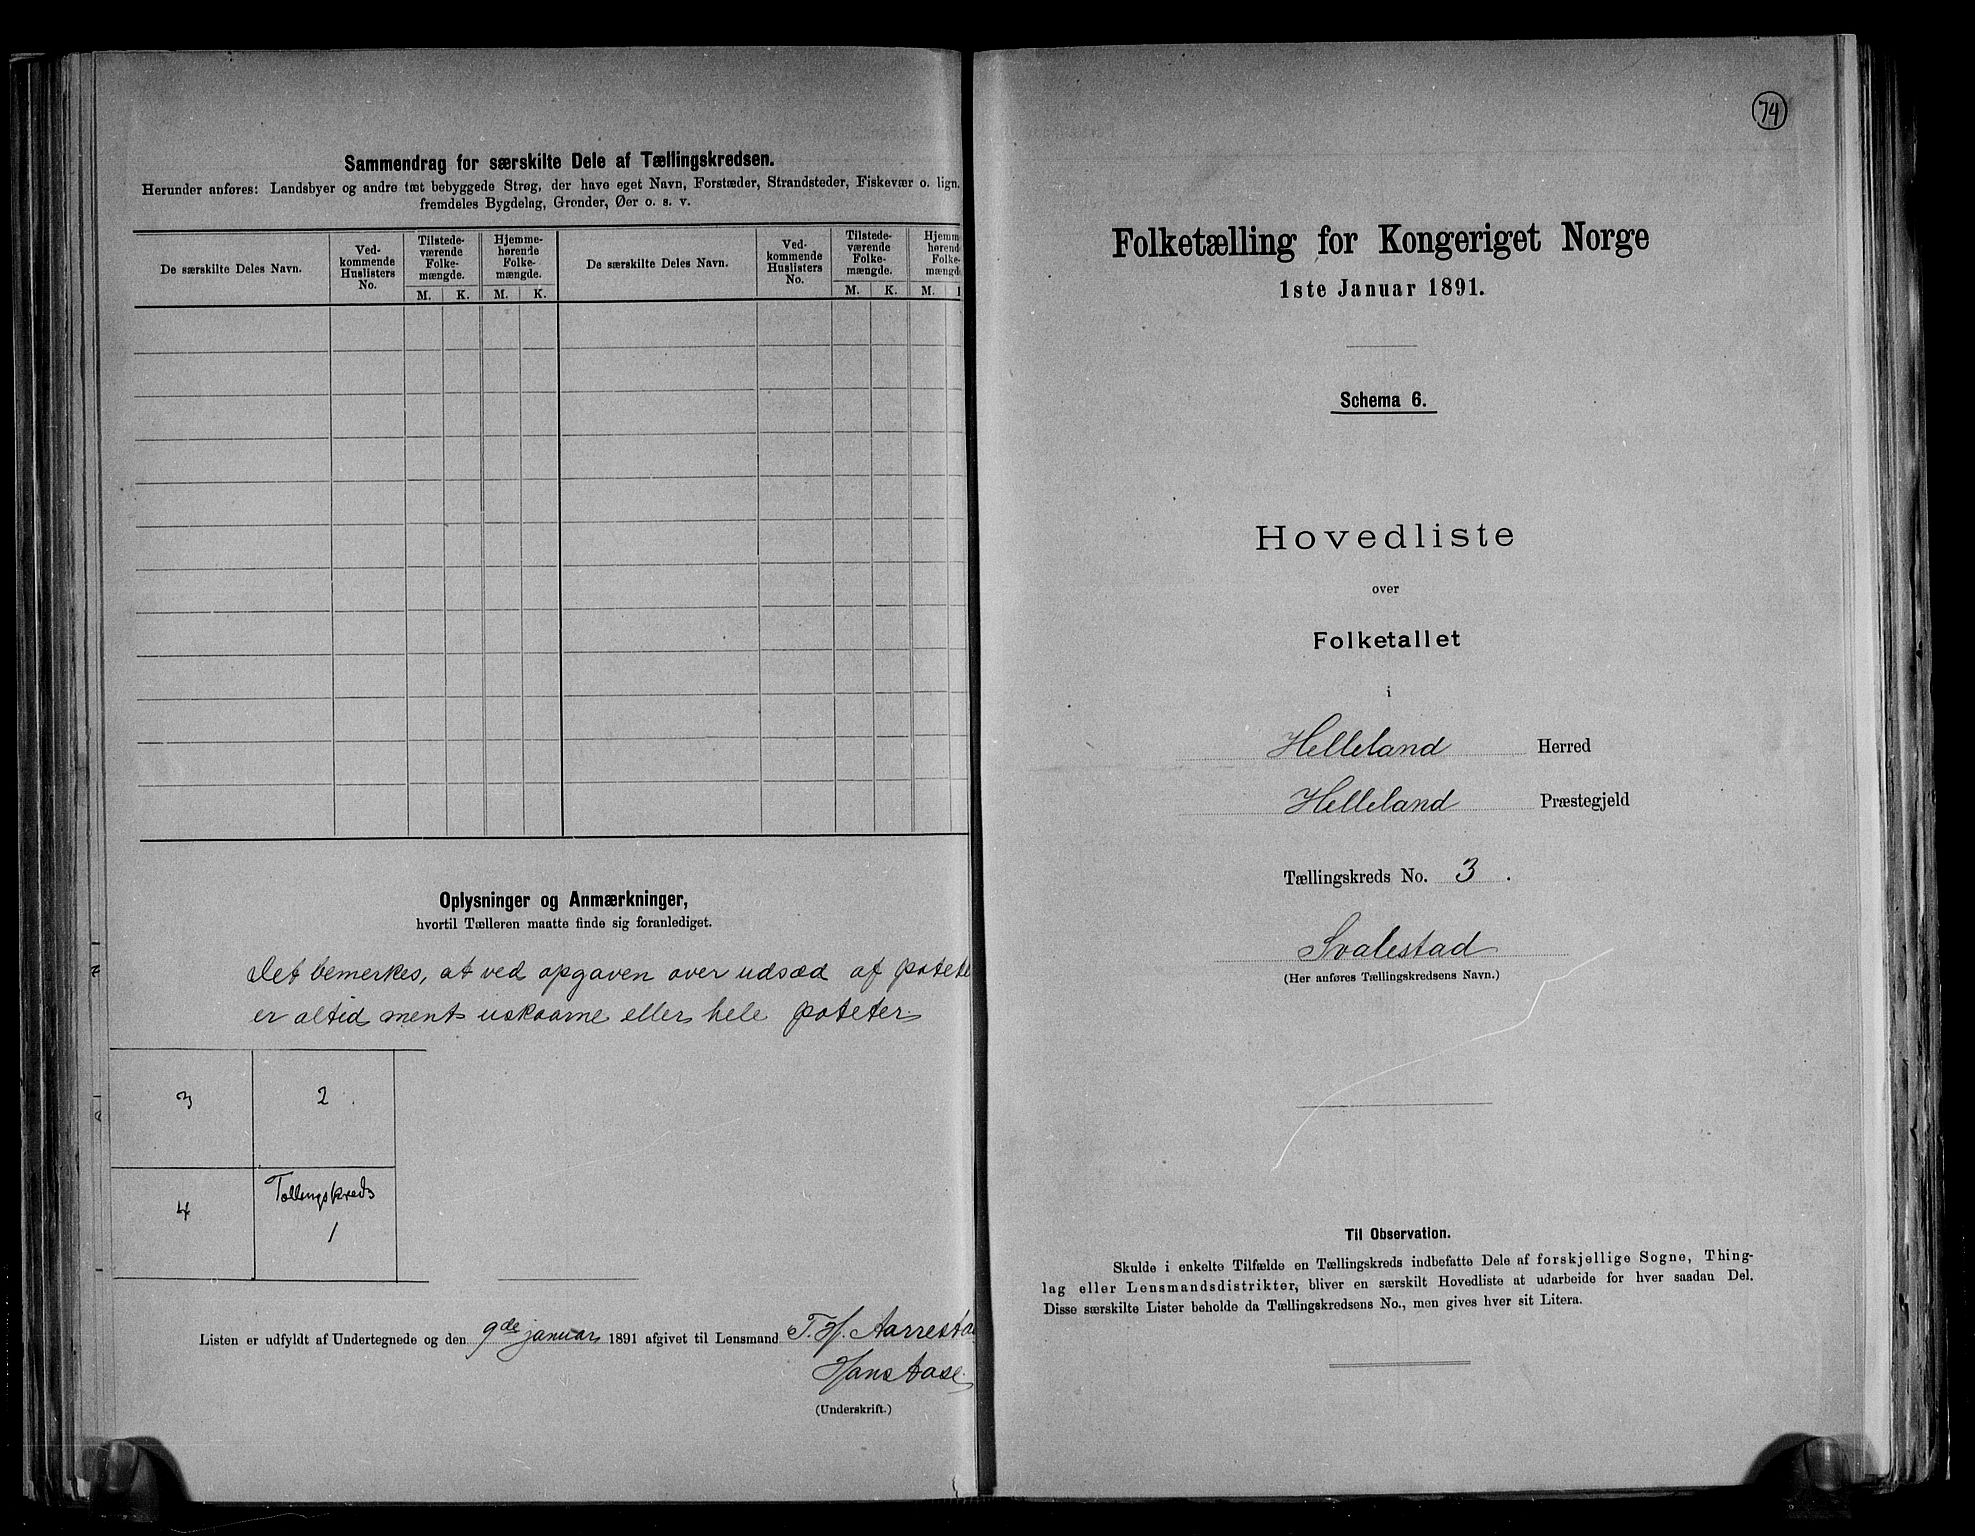 Sammendrag for særskilte Dele af Tællingskredsen.
Herunder anføres: Landsbyer og andre tæt bebyggede Strøg, der have eget Navn, Forstæder, Strandsteder, Fiskevær o. lign.
fremdeles Bygdelag, Grender, Øer o. s. v.
De særskilte Deles Navn.
Ved-
kommende
Huslisters
No.
Tilstede-
værende
Folke-
mængde.
M. K.
Hjemme-
hørende
Folke-
mængde.
M. K.
De særskilte Deles Navn.
Ved-
kommende
Huslisters
No.
Tilstede-
værende
Folke-
mængde.
M. K.
Hjemme
hørend
Folke-
mængd
M.
Oplysninger og Anmærkninger,
hvortil Tælleren maatte finde sig foranlediget.
Det bemerkes, at ved opgaven over udsæd af potete
er altid ment uskaarne eller hele poteter.
3 2
4 Tællingskreds
1
Listen er udfyldt af Undertegnede og den 9de januar 1891 afgivet til Lensmand T. H. Aarresta
Hans Aase
(Underskrift.)
74
Folketælling for Kongeriget Norge
1ste Januar 1891.
Schema 6.
Hovedliste
over
Folketallet
i
Helleland Herred
Helleland Præstegjeld
Tællingskreds No. 3.
Svalestad
(Her anføres Tællingskredsens Navn.)
Til Observation.
Skulde i enkelte Tilfælde en Tællingskreds indbefatte Dele af forskjellige Sogne, Thing-
lag eller Lensmandsdistrikter, bliver en særskilt Hovedliste at udarbeide for hver saadan Del.
Disse særskilte Lister beholde da Tællingskredsens No., men gives hver sit Litera.